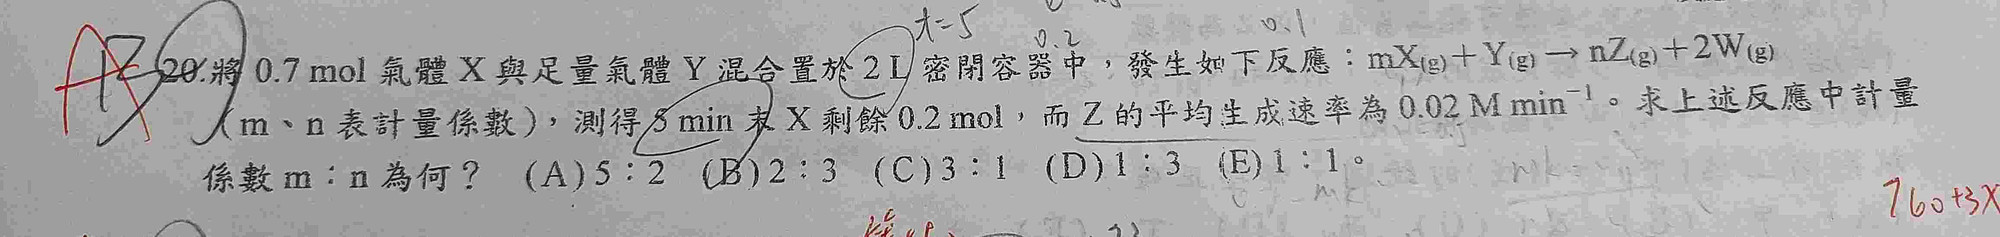 t=5 0.2 0.1
A 20.將 0.7 mol 氣體 X 與足量氣體 Y 混合置於 2 L 密閉容器中，發生如下反應：mX(g)＋Y(g)→nZ(g)＋2W(g)
（m、n 表計量係數），測得 5 min 末 X 剩餘 0.2 mol，而 Z 的平均生成速率為 0.02 M min⁻¹。求上述反應中計量
係數 m：n 為何？ (A)5：2 (B)2：3 (C)3：1 (D)1：3 (E)1：1。
760+3X